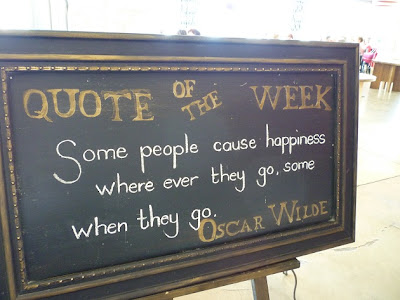 QUOTE OF THE WEEK
Some people cause happiness
where ever they go, some
when they go.
OSCAR WILDE